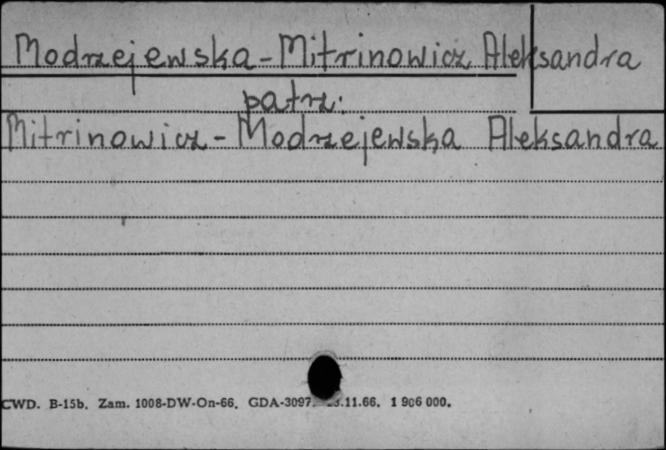 Modrzejewska-Mitrinowicz Aleksandra
patrz:
Mitrinowicz-Modrzejewska Aleksandra
CWD. B-15b. Zam. 1008-DW-On-66. GDA-3097. .11.66. 1 906 000.